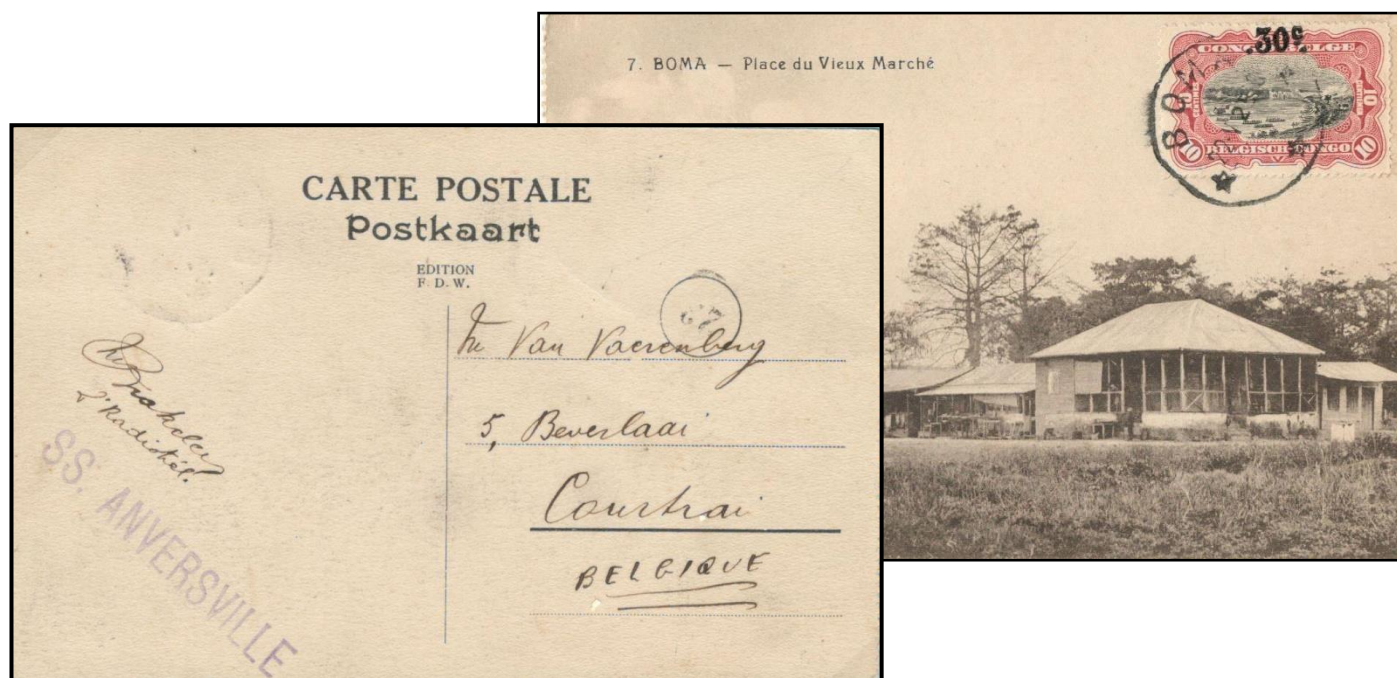 7. BOMA — Place du Vieux Marché
30c
CONGO BELGE
10 CENTIMES
10 CENTIEMEN
10
BELGISCH CONGO
10
BOMA
CARTE POSTALE
Postkaart
EDITION
F. D. W.
Van Vaerenberg
5, Beverlaai
Courtrai
BELGIQUE
SS. ANVERSVILLE